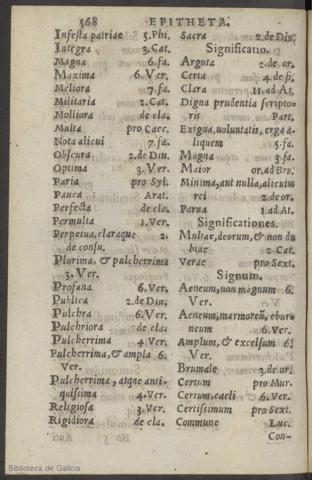 568 EPITHETA.
Infesta patriae 5. Phi.
Integra 3. Cat.
Magna 6. fa.
Maxima 6. Ver.
Meliora 7. fa.
Militaria 2. Cat.
Molliora de cla.
Multa pro Caec.
Nota alicui 7. fa.
Obscura 2. de Diu.
Optima 3. Ver.
Paria pro Syl.
Pauca Arat.
Perfecta de cla.
Permulta 1. Ver.
Perpetua, claraque 2.
de consu.
Plurima, & pulcherrima
3. Ver.
Profana 6. Ver.
Publica 2. de Diu.
Pulchra 6. Ver.
Pulchriora de cla.
Pulcherrima 4. Ver.
Pulcherrima, & ampla 6.
Ver.
Pulcherrima, atque anti-
quissima 4. Ver.
Religiosa 3. Ver.
Rigidiora de cla.
Sacra 2. de Diu.
Significatio.
Arguta 2. de or.
Certa 4. de fi.
Clara 11. ad At.
Digna prudentia scripto-
ris Part.
Exigua, voluntatis, erga a-
liquem 5. fa.
Magna 3. fa.
Maior or. ad Bru.
Minima, aut nulla, alicuius
rei 2. de or.
Parua 1. ad At.
Significationes.
Multae, deorum, & non du
biae 2. Cat.
Verae pro Sext.
Signum.
Aeneum, non magnum 6.
Ver.
Aeneum, marmoreũ, ebur-
neum 6. Ver.
Amplum, & excelsum 6.
Ver.
Brumale 3. de or.
Certum pro Mur.
Certum, caeli 6. Ver.
Certissimum pro Sext.
Commune Luc.
Con-
Biblioteca de Galicia